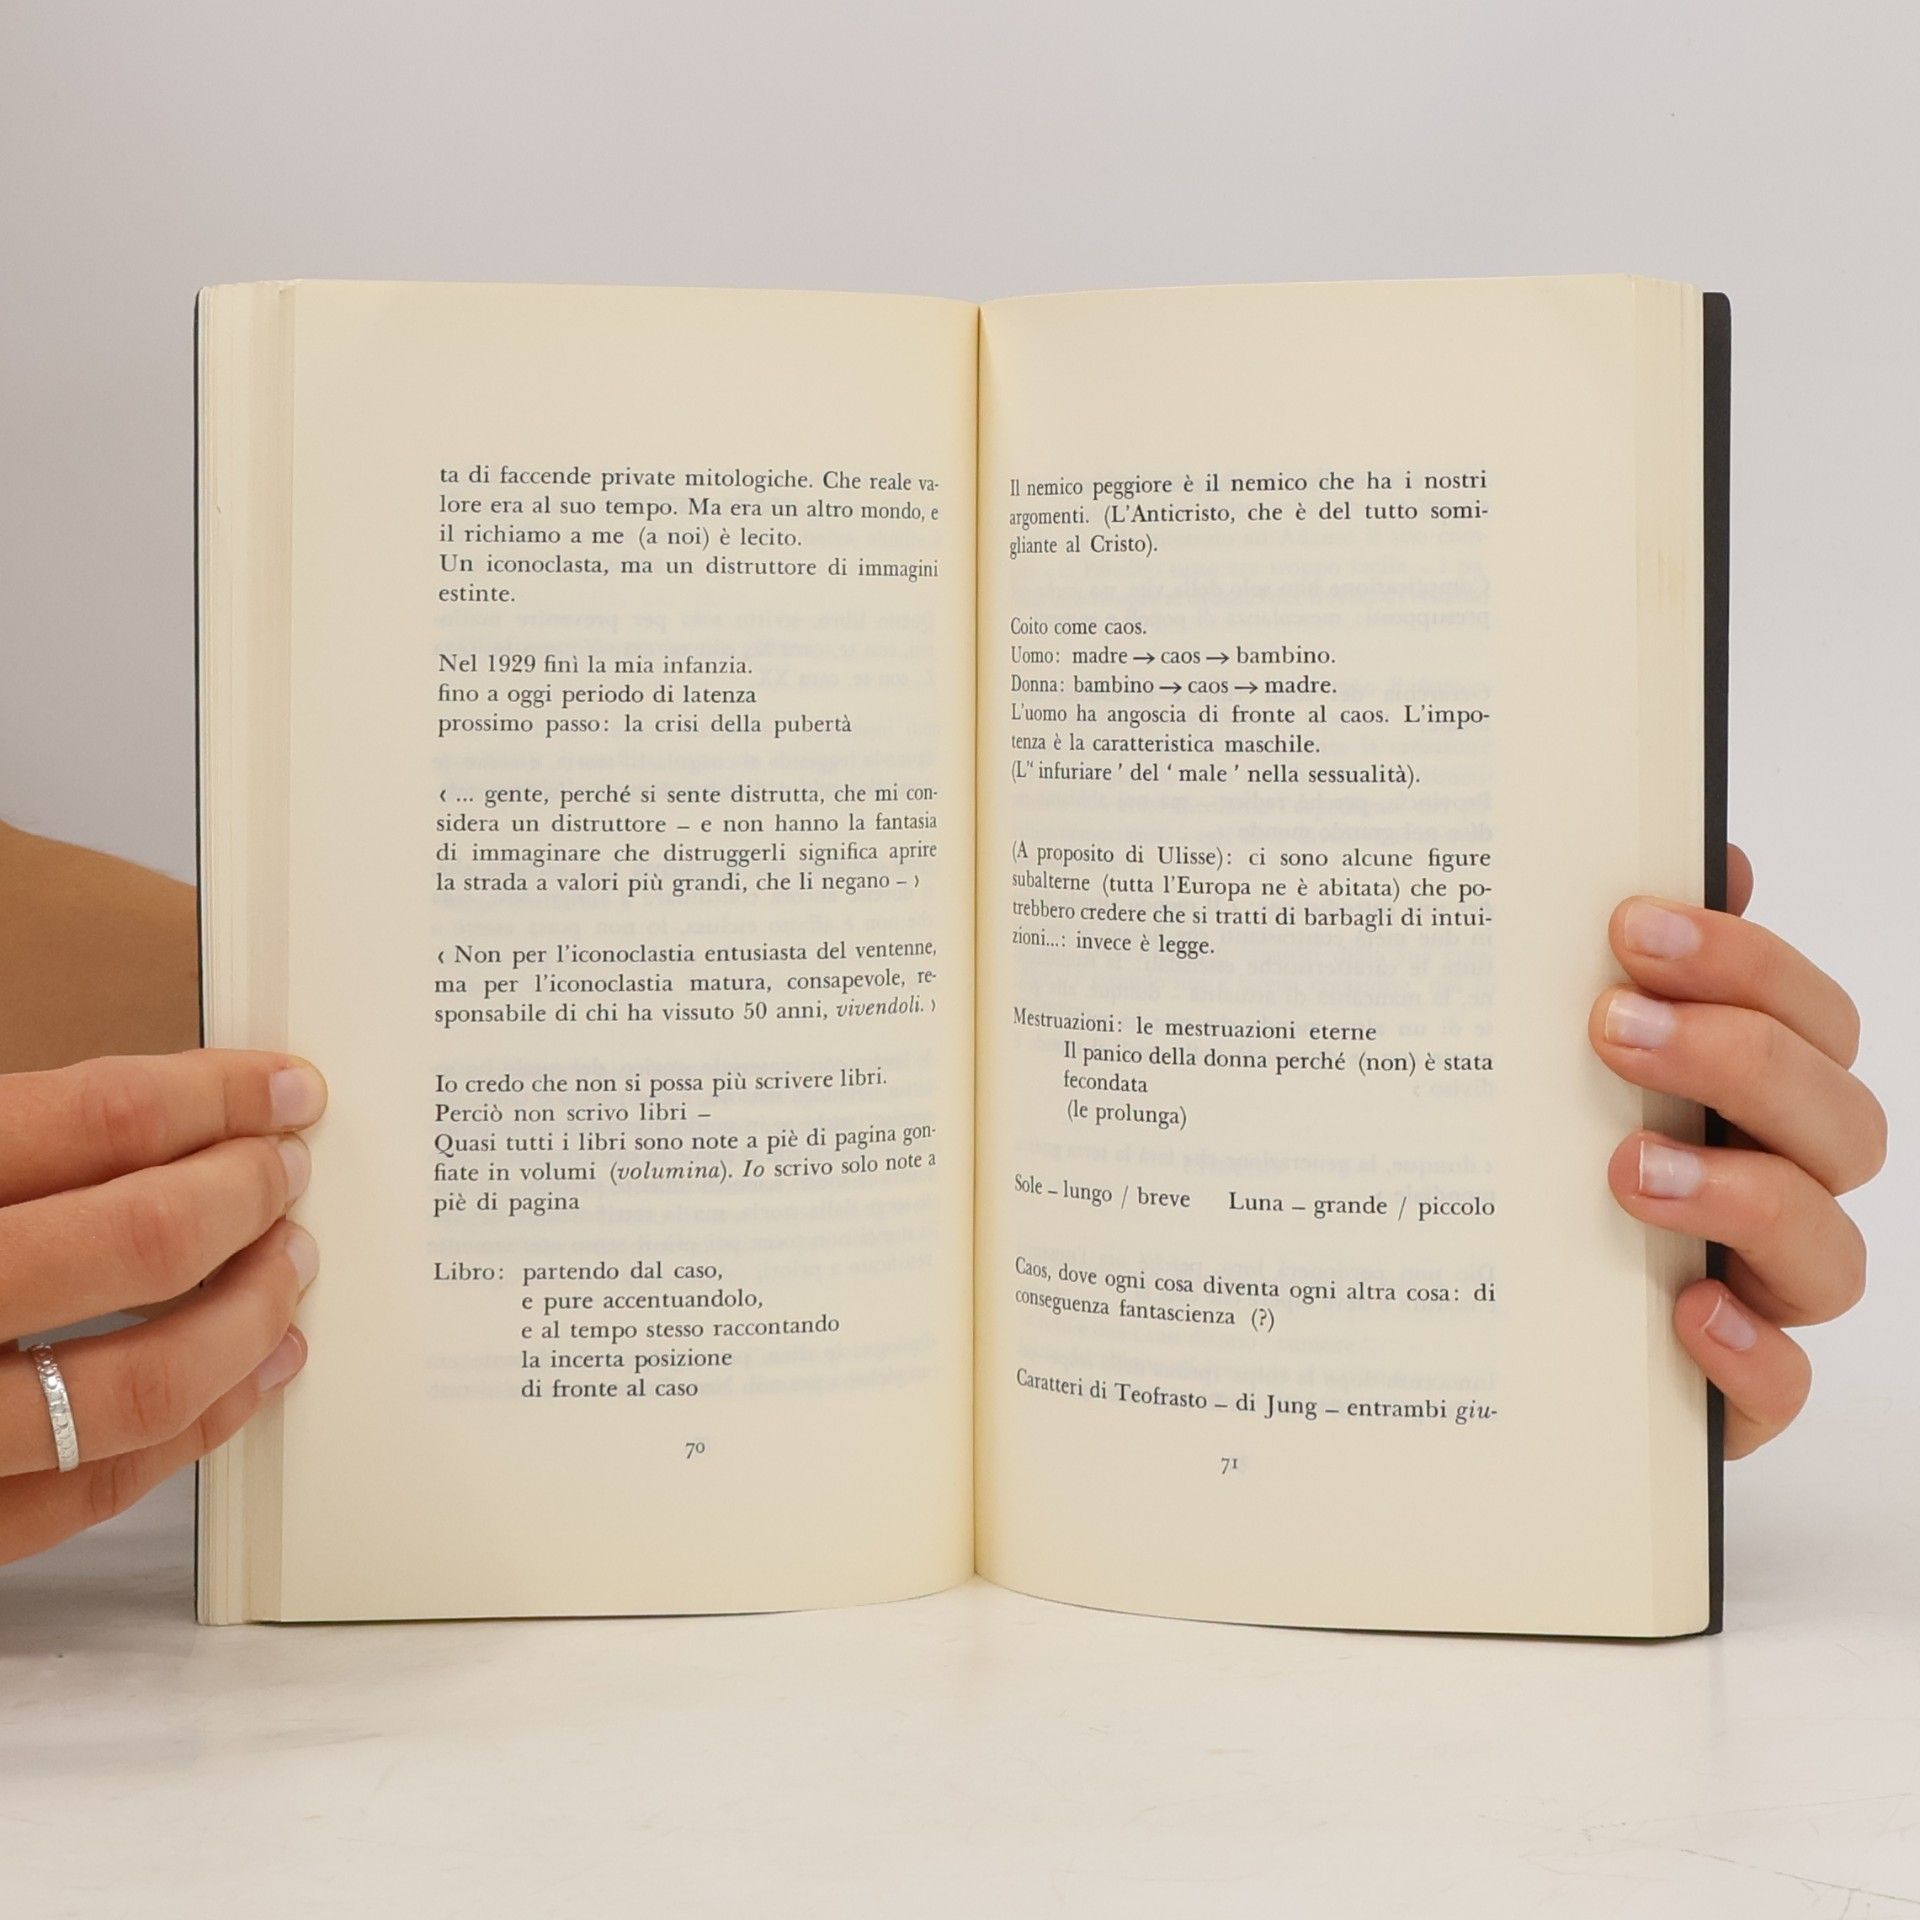 ta di faccende private mitologiche. Che reale va-
lore era al suo tempo. Ma era un altro mondo, e
il richiamo a me (a noi) è lecito.
Un iconoclasta, ma un distruttore di immagini
estinte.
Nel 1929 finì la mia infanzia.
fino a oggi periodo di latenza
prossimo passo: la crisi della pubertà
‹ ... gente, perché si sente distrutta, che mi con-
sidera un distruttore – e non hanno la fantasia
di immaginare che distruggerli significa aprire
la strada a valori più grandi, che li negano – ›
‹ Non per l'iconoclastia entusiasta del ventenne,
ma per l'iconoclastia matura, consapevole, re-
sponsabile di chi ha vissuto 50 anni, vivendoli. ›
Io credo che non si possa più scrivere libri.
Perciò non scrivo libri –
Quasi tutti i libri sono note a piè di pagina gon-
fiate in volumi (volumina). Io scrivo solo note a
piè di pagina
Libro: partendo dal caso,
e pure accentuandolo,
e al tempo stesso raccontando
la incerta posizione
di fronte al caso
70
Il nemico peggiore è il nemico che ha i nostri
argomenti. (L'Anticristo, che è del tutto somi-
gliante al Cristo).
Coito come caos.
Uomo: madre → caos → bambino.
Donna: bambino → caos → madre.
L'uomo ha angoscia di fronte al caos. L'impo-
tenza è la caratteristica maschile.
(L'‘ infuriare ’ del ‘ male ’ nella sessualità).
(A proposito di Ulisse): ci sono alcune figure
subalterne (tutta l'Europa ne è abitata) che po-
trebbero credere che si tratti di barbagli di intui-
zioni...: invece è legge.
Mestruazioni: le mestruazioni eterne
Il panico della donna perché (non) è stata
fecondata
(le prolunga)
Sole – lungo / breve Luna – grande / piccolo
Caos, dove ogni cosa diventa ogni altra cosa: di
conseguenza fantascienza (?)
Caratteri di Teofrasto – di Jung – entrambi giu-
71